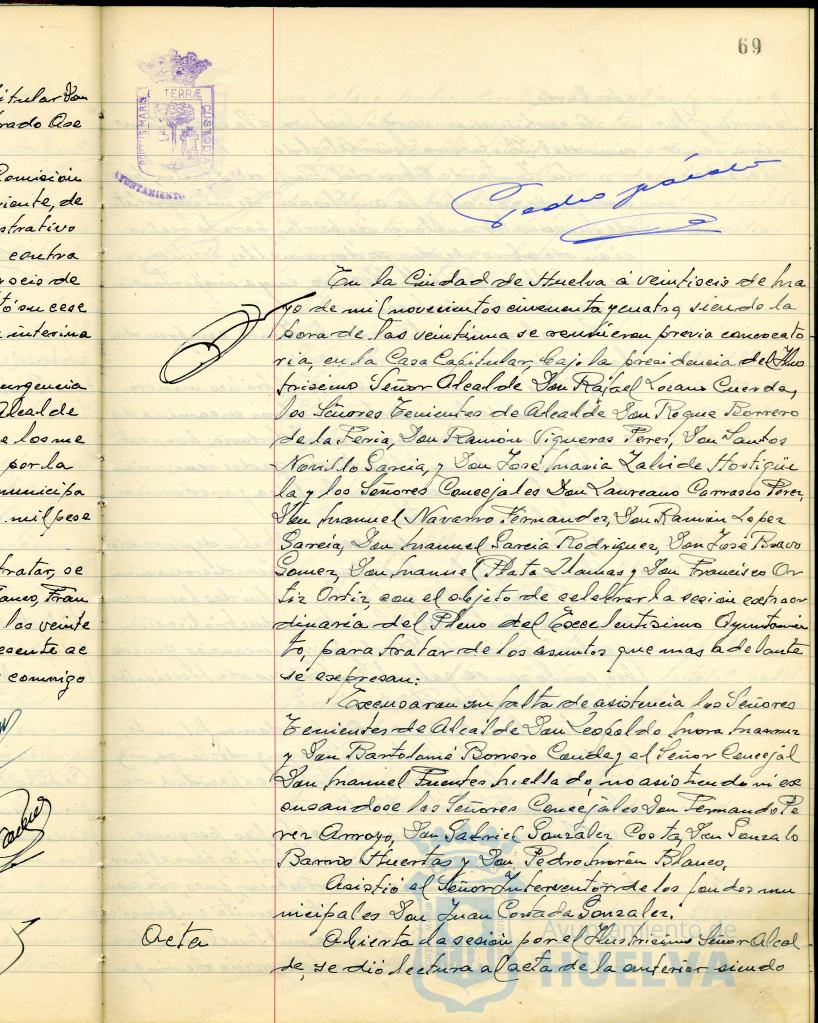 69
PORTUS MARIS
TERRÆ
CUSTODIA
AYUNTAMIENTO
itular Don
rado Ase
Comisión
riente, de
strativo
contra
rocio de
tó su cese
interina
urgencia
Alcalde
e los me
por la
municipa
mil pese
tratar, se
anco, Fran
las veinte
esente ac
conmigo
Pedro
En la Ciudad de Huelva á veintiocio de ma
yo de mil novecientos cincuenta y cuatro, siendo la
hora de las veintiuna se reunieron previa convocato
ria, en la Casa Capitular, bajo la presidencia del Ilus
trisimo Señor Alcalde Don Rafael Lozano Cuerda,
los Señores Tenientes de Alcalde Don Roque Borrero
de la Feria, Don Ramón Vigueras Perez, Don Santos
Novillo Garcia, y Don José Maria Zalvide Hortigüe
la y los Señores Concejales Don Laureano Carrasco Perez,
Don Manuel Navarro Fernandez, Don Ramón Lopez
Garcia, Don Manuel Garcia Rodriguez, Don José Bravo
Gomez, Don Manuel Plata Llamas y Don Francisco Or
tiz Ortiz, con el objeto de celebrar la sesión extraor
dinaria del Pleno del Excelentisimo Ayuntamien
to, para tratar de los asuntos que mas adelante
se expresan:
Excusaron su falta de asistencia los Señores
Tenientes de Alcalde Don Leopoldo Mora
y Don Bartolomé Borrero Conde, y el Señor Concejal
Don Manuel Fuentes Mellado, no asistiendo ni ex
cusandose los Señores Concejales Don Fernando Pe
rez Arroyo, Don Gabriel González Costa, Don Gonzalo
Barroso Huertas y Don Pedro Morón Blanco.
Asistió el Señor Interventor de los fondos mu
nicipales Don Juan Contada Gonzalez.
Acta
Abierta la sesión por el Ilustrisimo Señor Alcal
de, se dió lectura al acta de la anterior siendo
Ayuntamiento de
HUELVA